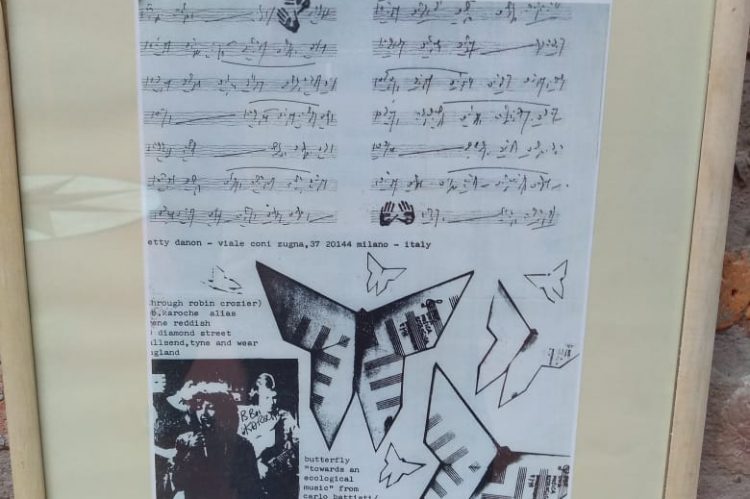 etty danon - viale coni zugna,37 20144 milano - italy
hrough robin crozier)
karoche alias
ene reddish
diamond street
allsend,tyne and wear
ngland
butterfly
"towards an
ecological
music" from
carlo battisti/